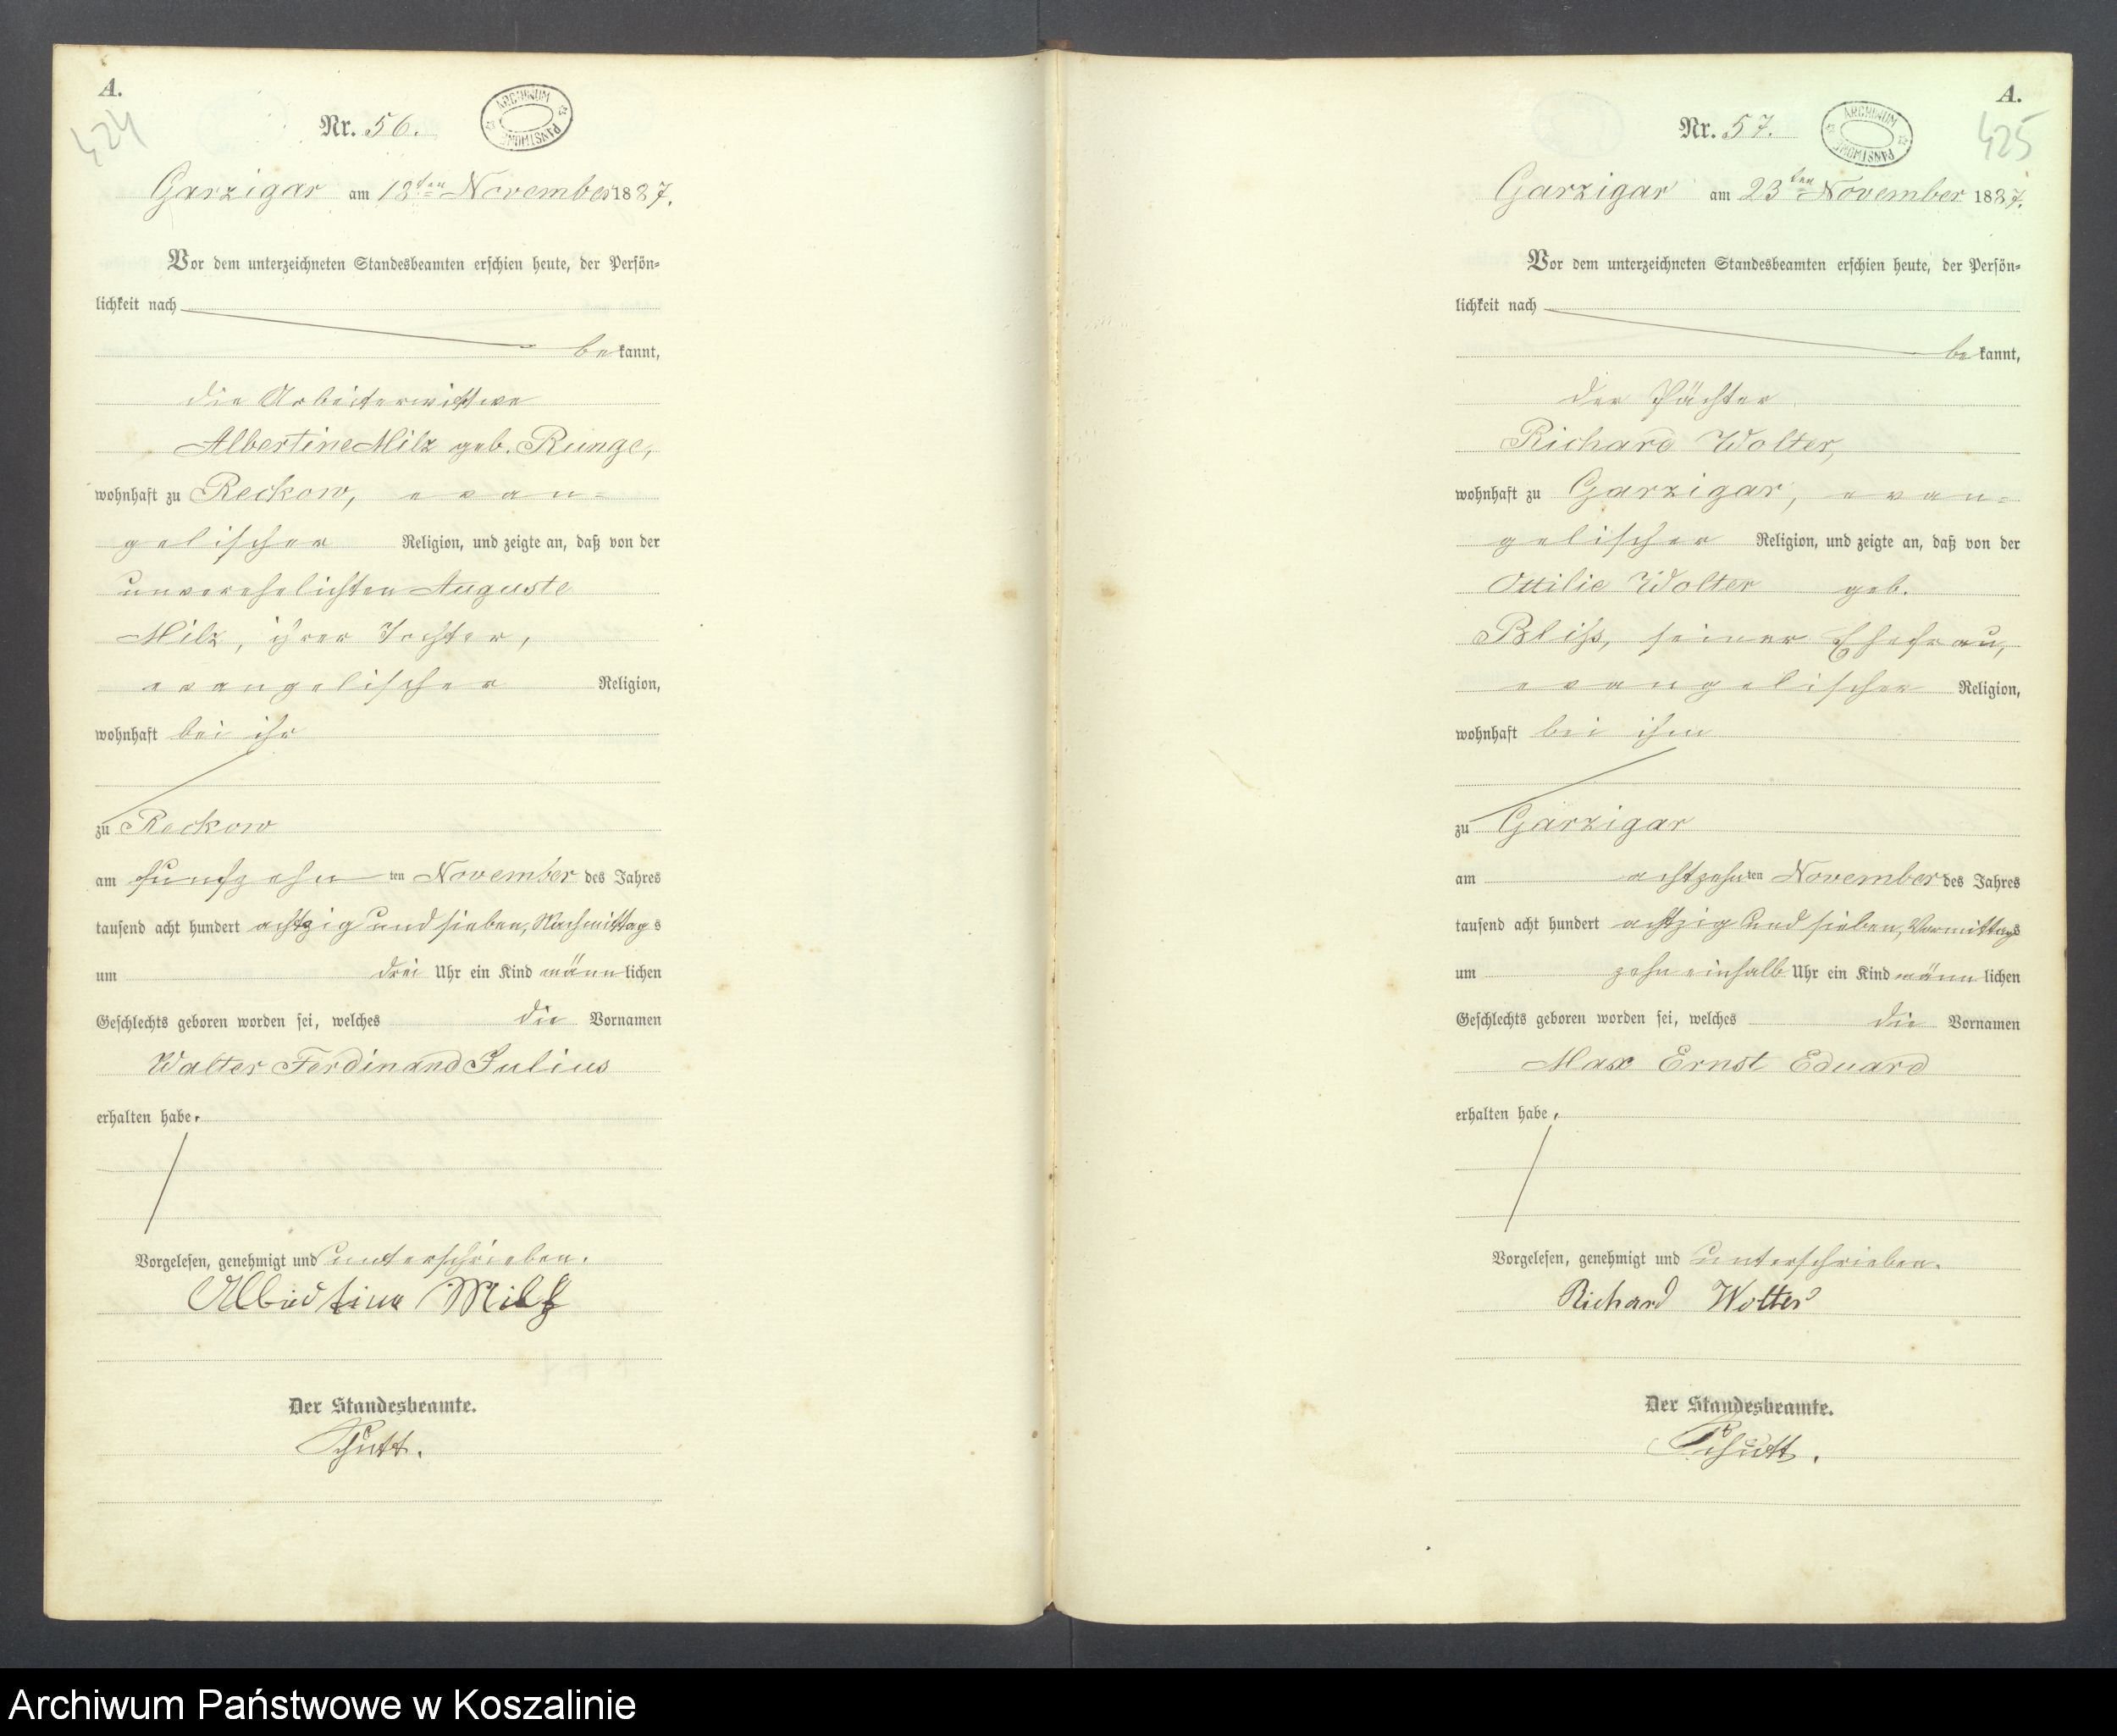 A.
424
Nr. 56.
ARCHIWUM PAŃSTWOWE
Garzigar am 18ten November 1887.
Vor dem unterzeichneten Standesbeamten erschien heute, der Persön-
lichkeit nach
bekannt,
die Arbeiterwittwe
Albertine Milz geb. Runge,
wohnhaft zu Reckow, evan-
gelischer Religion, und zeigte an, daß von der
unverehelichten Auguste
Milz, ihrer Tochter,
evangelischer Religion,
wohnhaft bei ihr
zu Reckow
am fünfzehnten November des Jahres
tausend acht hundert achtzig und sieben, Nachmittags
um drei Uhr ein Kind männlichen
Geschlechts geboren worden sei, welches die Vornamen
Walter Ferdinand Julius
erhalten habe.
Vorgelesen, genehmigt und unterschrieben.
Albertine Milz
Der Standesbeamte.
Schütt.
A.
425
Nr. 57.
ARCHIWUM PAŃSTWOWE
Garzigar am 23ten November 1887.
Vor dem unterzeichneten Standesbeamten erschien heute, der Persön-
lichkeit nach
bekannt,
der Pächter
Richard Wolter,
wohnhaft zu Garzigar, evan-
gelischer Religion, und zeigte an, daß von der
Ottilie Wolter geb.
Bliß, seiner Ehefrau,
evangelischer Religion,
wohnhaft bei ihm
zu Garzigar
am achtzehnten November des Jahres
tausend acht hundert achtzig und sieben, Vormittags
um zehn einhalb Uhr ein Kind männlichen
Geschlechts geboren worden sei, welches die Vornamen
Max Ernst Eduard
erhalten habe.
Vorgelesen, genehmigt und unterschrieben.
Richard Wolter
Der Standesbeamte.
Schütt.
Archiwum Państwowe w Koszalinie